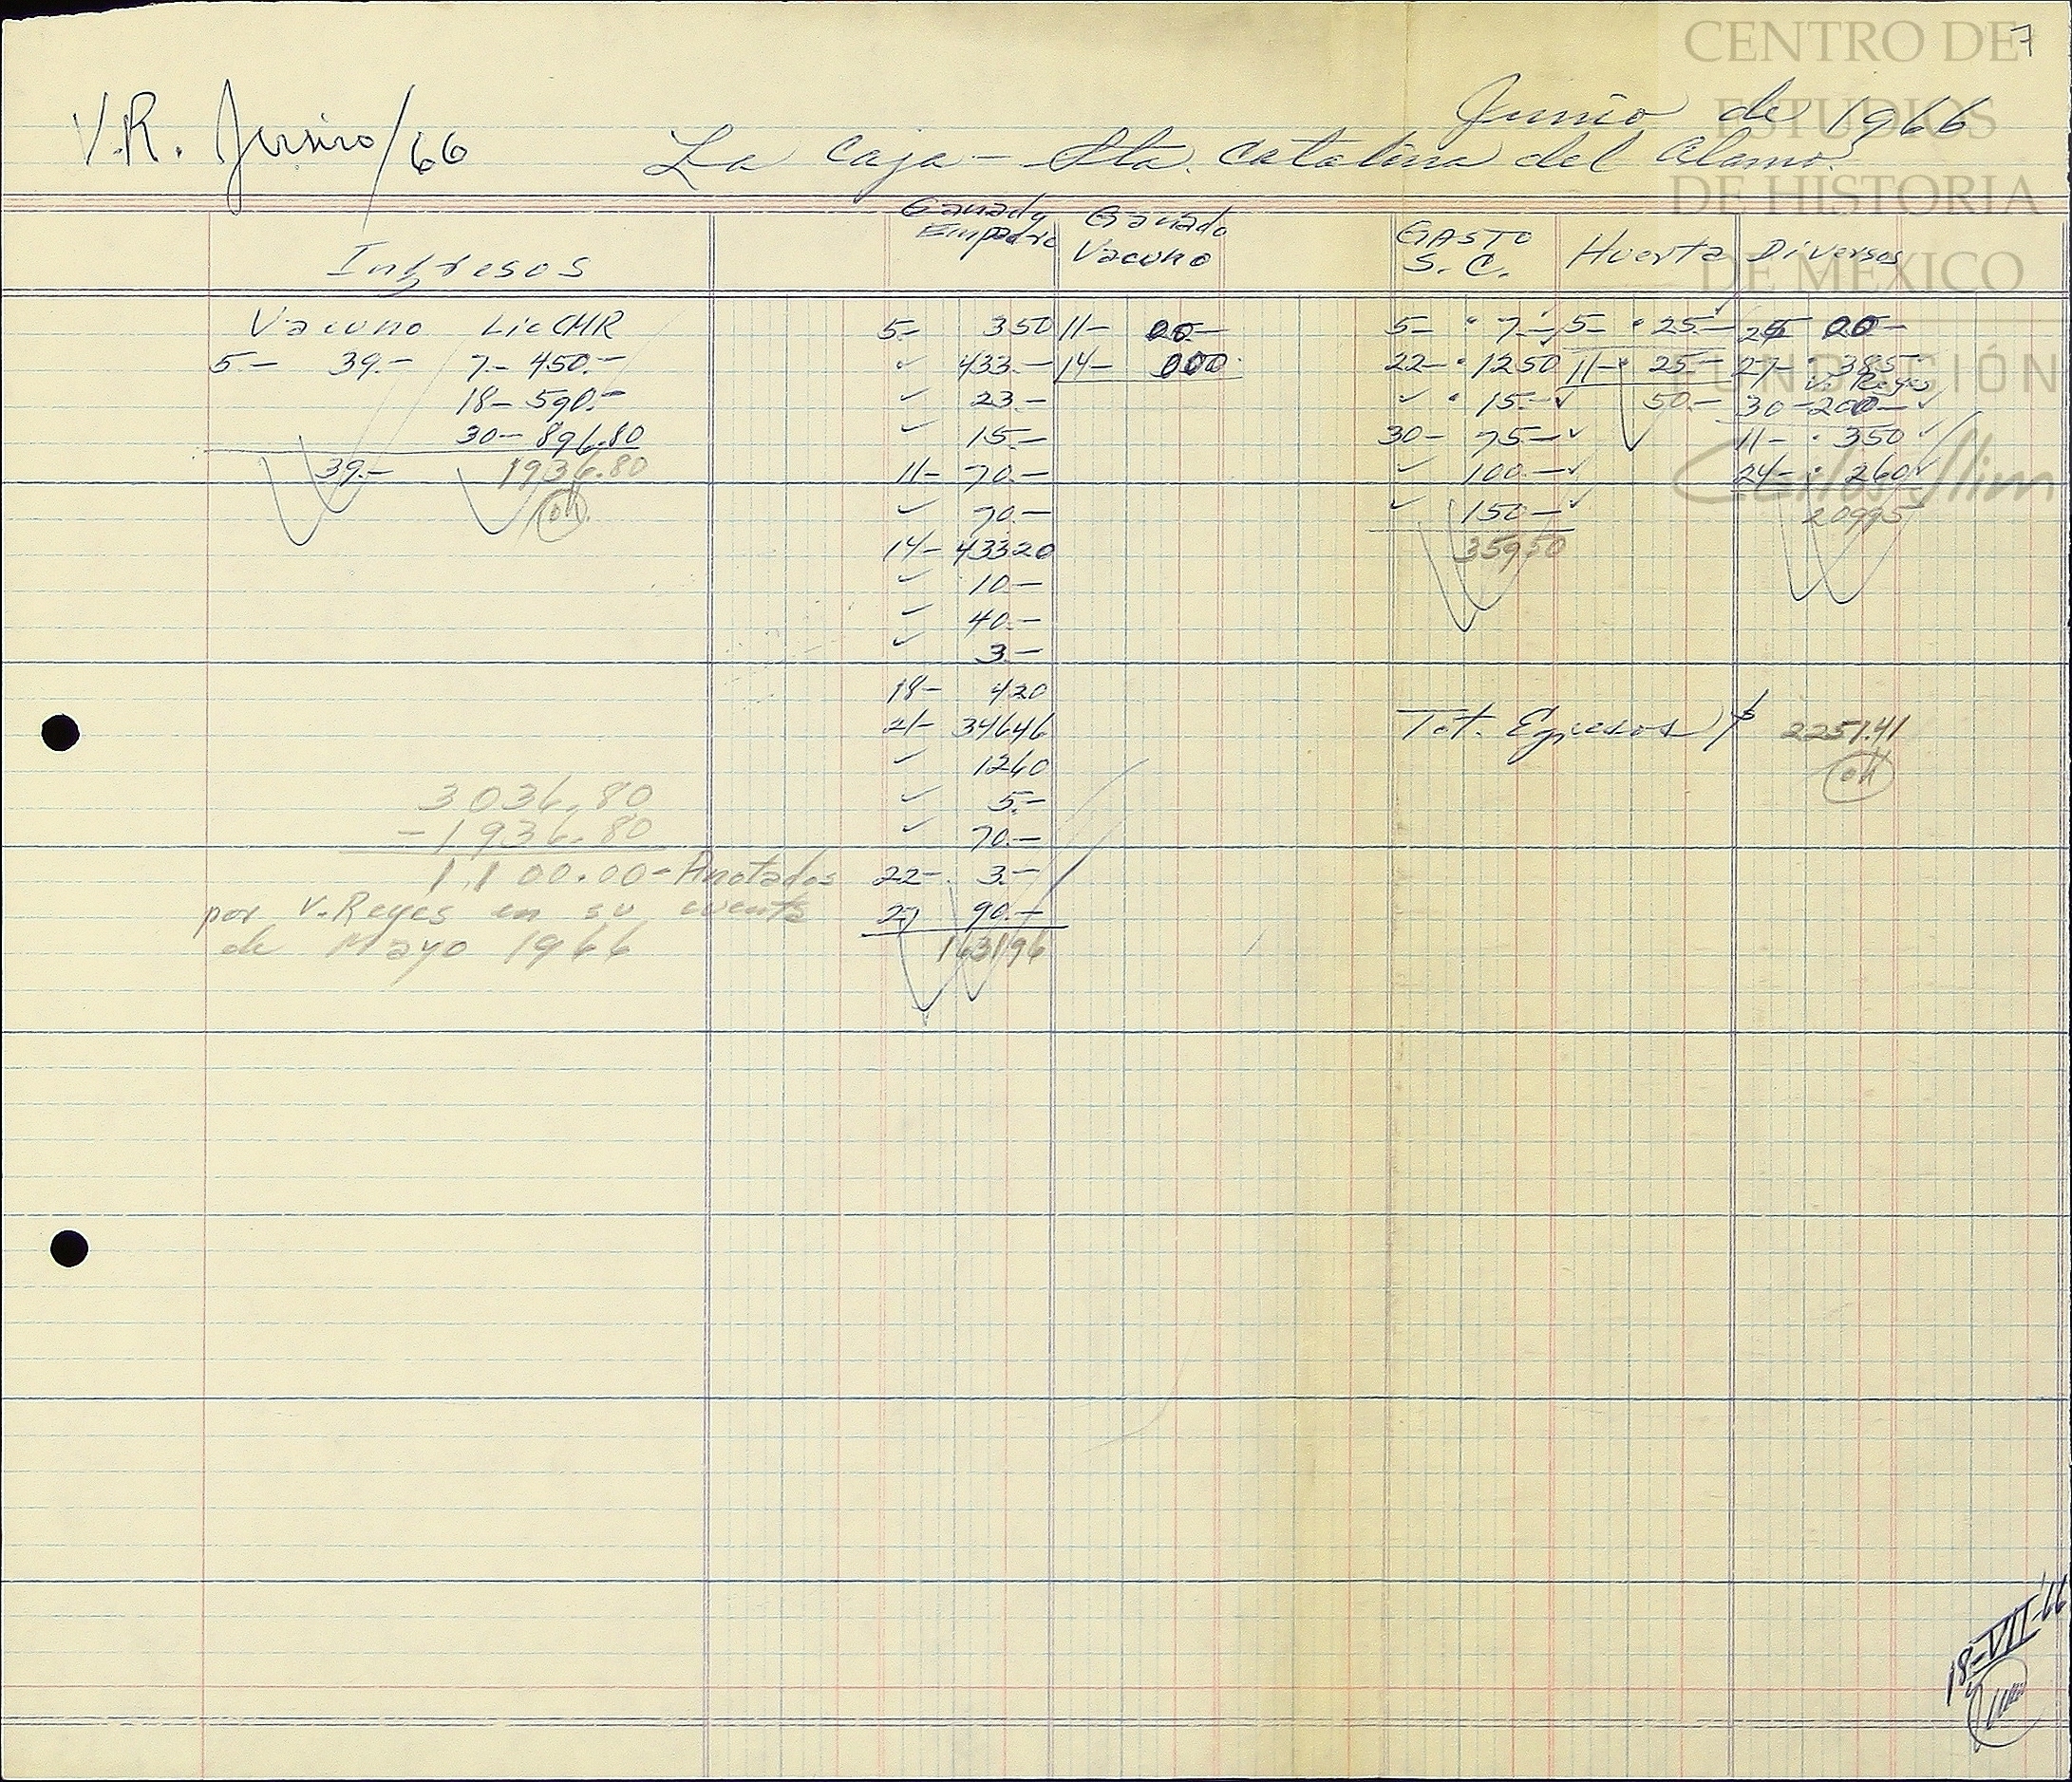 7
V.R. Junio/66
Junio de 1966
La Caja - Sta. Catalina del Alamo.
Ingresos
Ganado Empadre
Ganado Vacuno
GASTO S. C.
Huerta
Diversos
Vacuno Lic CMR
5.- 39.- 7.- 450.-
18- 590.-
30- 896.80
39.- 1936.80
ok
5- 350
✓ 433.-
✓ 23.-
✓ 15.-
11- 70.-
✓ 70.-
14- 43320
✓ 10.-
✓ 40.-
✓ 3.-
18- 420
21- 34646
✓ 1260
✓ 5.-
✓ 70.-
22- 3.-
27 90.-
163196
11-
14-
5- 7.- ✓
22- 1250
✓ 15.- ✓
30- 75.- ✓
✓ 100.- ✓
✓ 150.- ✓
35950
5- 25.-
11- 25.-
50.-
27- 385
V. Reyes
30-200- ✓
11- 350 ✓
24- 260 ✓
20995
Tot. Egresos $ 2251.41
ok
3036.80
-1936.80
1,100.00 - Anotados
por V. Reyes en su cuenta
de Mayo 1966
18-VII-66
CENTRO DE
ESTUDIOS
DE HISTORIA
DE MÉXICO
FUNDACIÓN
Carlos Slim